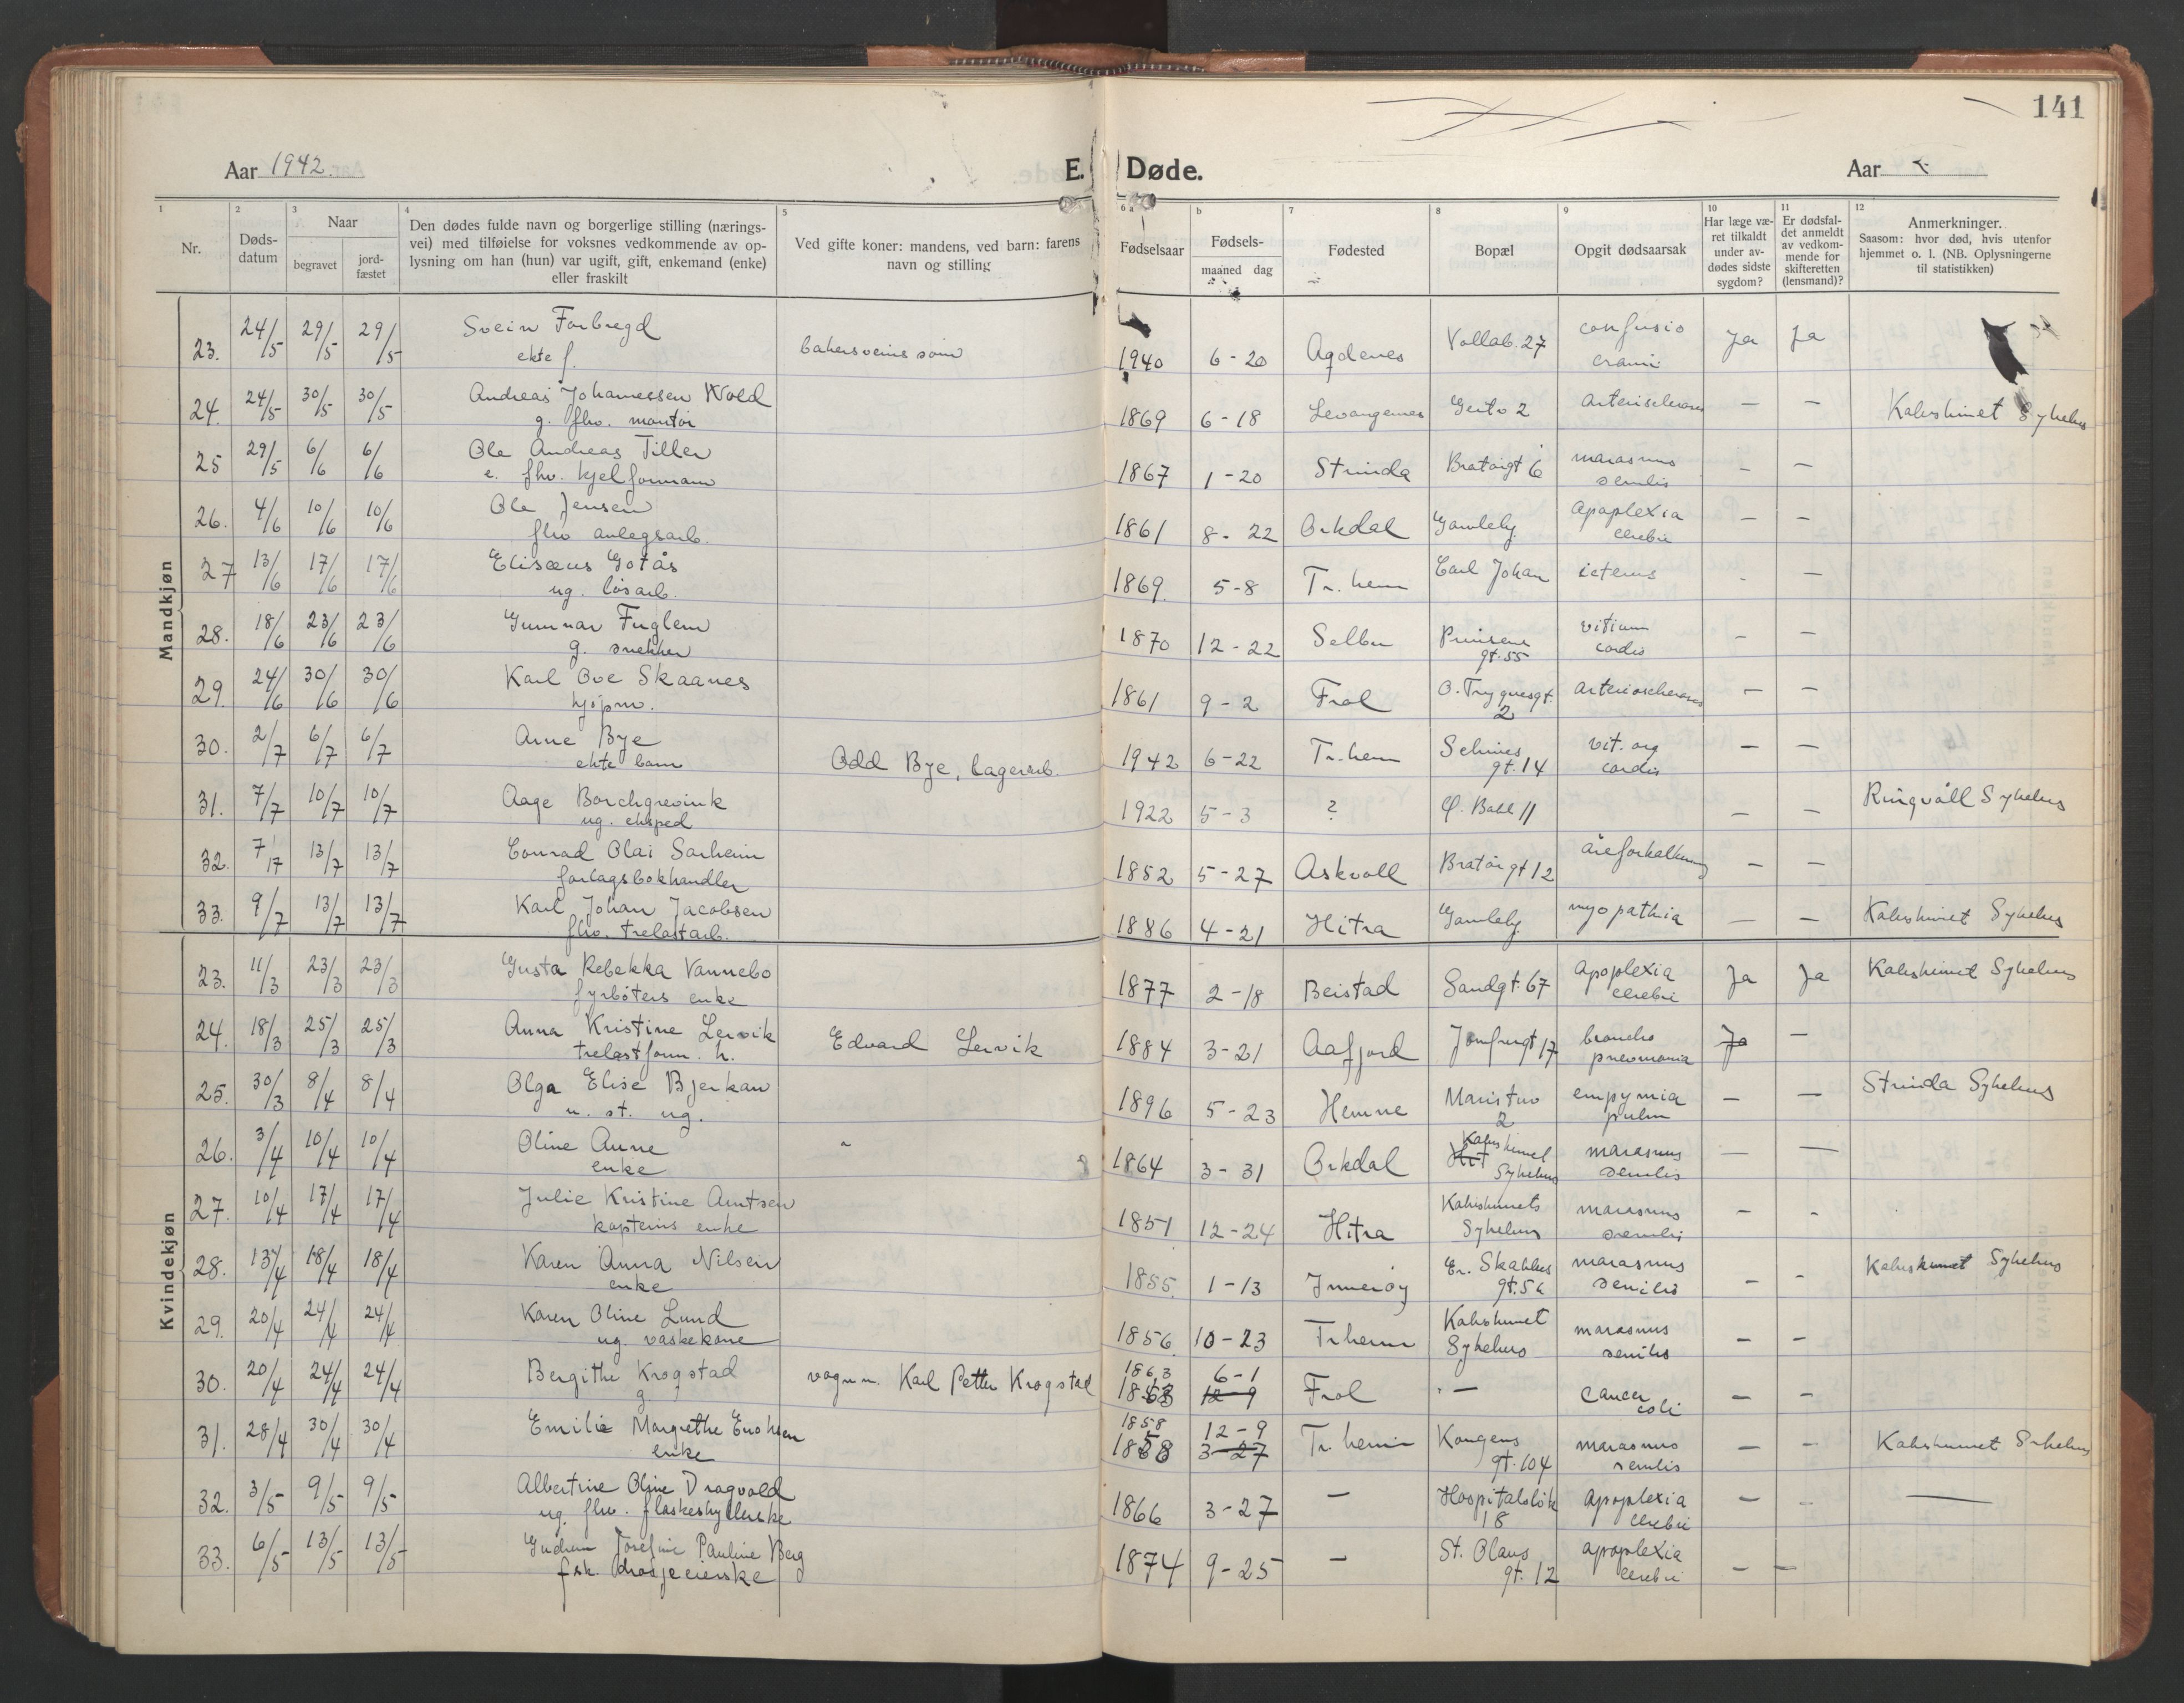 141
Aar 1942. E. Døde. Aar
1 2 3 4 5 6 a b 7 8 9 10 11 12
Nr.
Døds-
datum
Naar
begravet
jord-
fæstet
Den dødes fulde navn og borgerlige stilling (nærings-
vei) med tilføielse for voksnes vedkommende av op-
lysning om han (hun) var ugift, gift, enkemand (enke)
eller fraskilt
Ved gifte koner: mandens, ved barn: farens
navn og stilling
Fødselsaar
Fødsels-
maaned dag
Fødested
Bopæl
Opgit dødsaarsak
Har læge væ-
ret tilkaldt
under av-
dødes sidste
sygdom?
Er dødsfal-
det anmeldt
av vedkom-
mende for
skifteretten
(lensmand)?
Anmerkninger.
Saasom: hvor død, hvis utenfor
hjemmet o. l. (NB. Oplysningerne
til statistikken)
Mandkjøn
23. 24/5 29/5 29/5 Svein Forbregd
ekte f. bakersveins sønn 1940 6-20 Agdenes Vollab. 27 confusio
cranii Ja Ja
24. 24/5 30/5 30/5 Andreas Johannessen Wold
g. fhv. montør 1869 6-18 Levangernes 2 Arteriosclerosis — — Kalvskinnet Sykehus
25 29/5 6/6 6/6 Ole Andreas Tiller
e. fhv. kjelformann 1867 1-20 Strinda Bratørgt 6 marasmus
senilis — —
26. 4/6 10/6 10/6 Ole Jensen
fhv anlegsarb. 1861 8-22 Orkdal Gamleby apoplexia
cerebri — —
27 13/6 17/6 17/6 Elisæus Gotås
ug. løsarb. 1869. 5-8 Tr. heim Carl Johan icterus - —
28. 18/6 23/6 23/6 Gunnar Fuglem
g. snekker 1870 12-22 Selbu Prinsens
gt. 55 vitium
cordis — —
29. 24/6 30/6 30/6 Karl Ove Skaanes
kjøpm. 1861 9-2 Frol O. Trygvesgt.
2 arteriosclerosis — —
30. 2/7 6/7 6/7 Arne Bye
ekte barn Odd Bye, lagerarb. 1942 6-22 Tr. heim Selmers
gt. 14 vit. org
cordis — —
31. 7/7 10/7 10/7 Aage Borchgrevink
ug. eksped 1922 5-3 ? Q. Bakl 11 — — Ringvåll Sykehus
32. 7/7 13/7 13/7 Conrad Olai Sørheim
forlagsbokhandler 1852 5-27 Askvoll Bratørgt 12 åreforkalkning — —
33. 9/7 13/7 13/7 Karl Johan Jacobsen
fhv. trelastarb. 1886 4-21 Hitra Gamleby myopathia — — Kalvskinnet Sykehus
Kvindekjøn
23. 11/3 23/3 23/3 Gusta Rebekka Vannebo
fyrbøters enke 1877 2-18 Beistad Sandgt. 67 apoplexia
cerebri Ja Ja Kalvskinnet Sykehus
24. 18/3 25/3 25/3 Anna Kristine Lervik
trelastform. h. Edvard Lervik 1884 3-21 Aafjord Jomfrugt 17 broncho
pneumonia Ja —
25. 30/3 8/4 8/4 Olga Elise Bjerkan
u. st. ug. 1896 5-23 Hemne Maristuv
2 empymia
pulm — — Strinda Sykehus
26. 3/4 10/4 10/4 Oline Aune
enke 1864 3-31 Orkdal Kalvskinnet
Sykehus marasmus
senilis — —
27. 10/4 17/4 17/4 Julie Kristine Arntsen
kapteins enke 1851 12-24 Hitra Kalvskinnets
Sykehus marasmus
senilis — -
28. 13/4 18/4 18/4 Karen Anna Nilsen
enke 1855. 1-13 Inderøy Er. Skakkes
gt. 5a marasmus
senilis — - Kalvskinnet Sykehus
29. 20/4 24/4 24/4 Karen Oline Lund
ug. vaskekone 1856. 10-23 Tr heim Kalvskinnet
Sykehus marasmus
senilis — —
30. 20/4 24/4 24/4 Bergithe Krogstad
g vognm. Karl Petter Krogstad 1863 6-1
1863 12-9 Frol - — cancer
coli — —
31. 28/4 30/4 30/4 Emilie Margrethe Enoksen
enke 1858 12-9
1858 3-27 Tr. heim Kongens
gt. 104 marasmus
senilis — - Kalvskinnet Sykehus
32. 3/5 9/5 9/5 Albertine Oline Dragvold
ug. fhv. flaskeskyllerske 1866 3-27 — Hospitalsløk
18 apoplexia
cerebri — - —
33. 6/5 13/5 13/5 Gudrun Josefine Pauline Berg
fsk. drosjeeierske 1874 9-25 — St. Olavs
gt. 12 apoplexia
cerebri — —